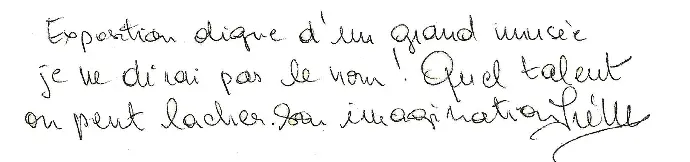 Exposition digne d'un grand musée
je ne dirai pas le nom! Quel talent
on peut lacher son imagination